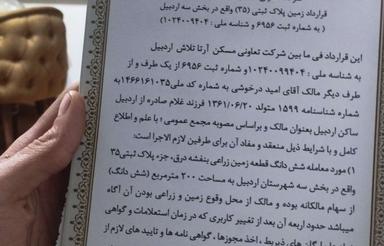 قرارداد زمین پلاک ثبتی (۳۵) واقع در بخش سه اردبیل
( به شماره ثبت ۶۹۵۶ و شناسه ملی : ۱۰۲۴۰۰۹۹۴۰۴ )
این قرارداد فی ما بین شرکت تعاونی مسکن آرتا تلاش اردبیل
به شناسه ملی : ۱۰۲۴۰۰۹۹۴۰۴ و شماره ثبت ۶۹۵۶ از یک طرف و از
طرف دیگر مالک آقای امید درخوشی به شماره کد ملی ۱۴۶۶۱۶۱۰۳۵
شماره شناسنامه ۱۵۹۹ متولد ۱۳۶۱/۰۶/۲۰ فرزند غلام صادره از اردبیل
ساکن اردبیل بعنوان مالک و براساس مصوبه مجمع عمومی ؛ با علم و اطلاع
کامل و با شرایط ذیل منعقد و مفاد آن برای طرفین لازم الاجرا است:
۱) مورد معامله شش دانگ قطعه زمین زراعی بنفشه درق، جزء پلاک ثبتی ۳۵
واقع در بخش سه شهرستان اردبیل به مساحت ۲۰۰ مترمربع (شش دانگ)
از سهام مالکانه بوده و مالک از محل وقوع زمین و زراعی بودن آن آگاه
میباشد حدود اربعه آن بعد از تغییر کاربری که در زمان استعلامات و گواهی
ذیربط ، اخذ مجوزها ، گواهی نامه ها و تایید های لازم از